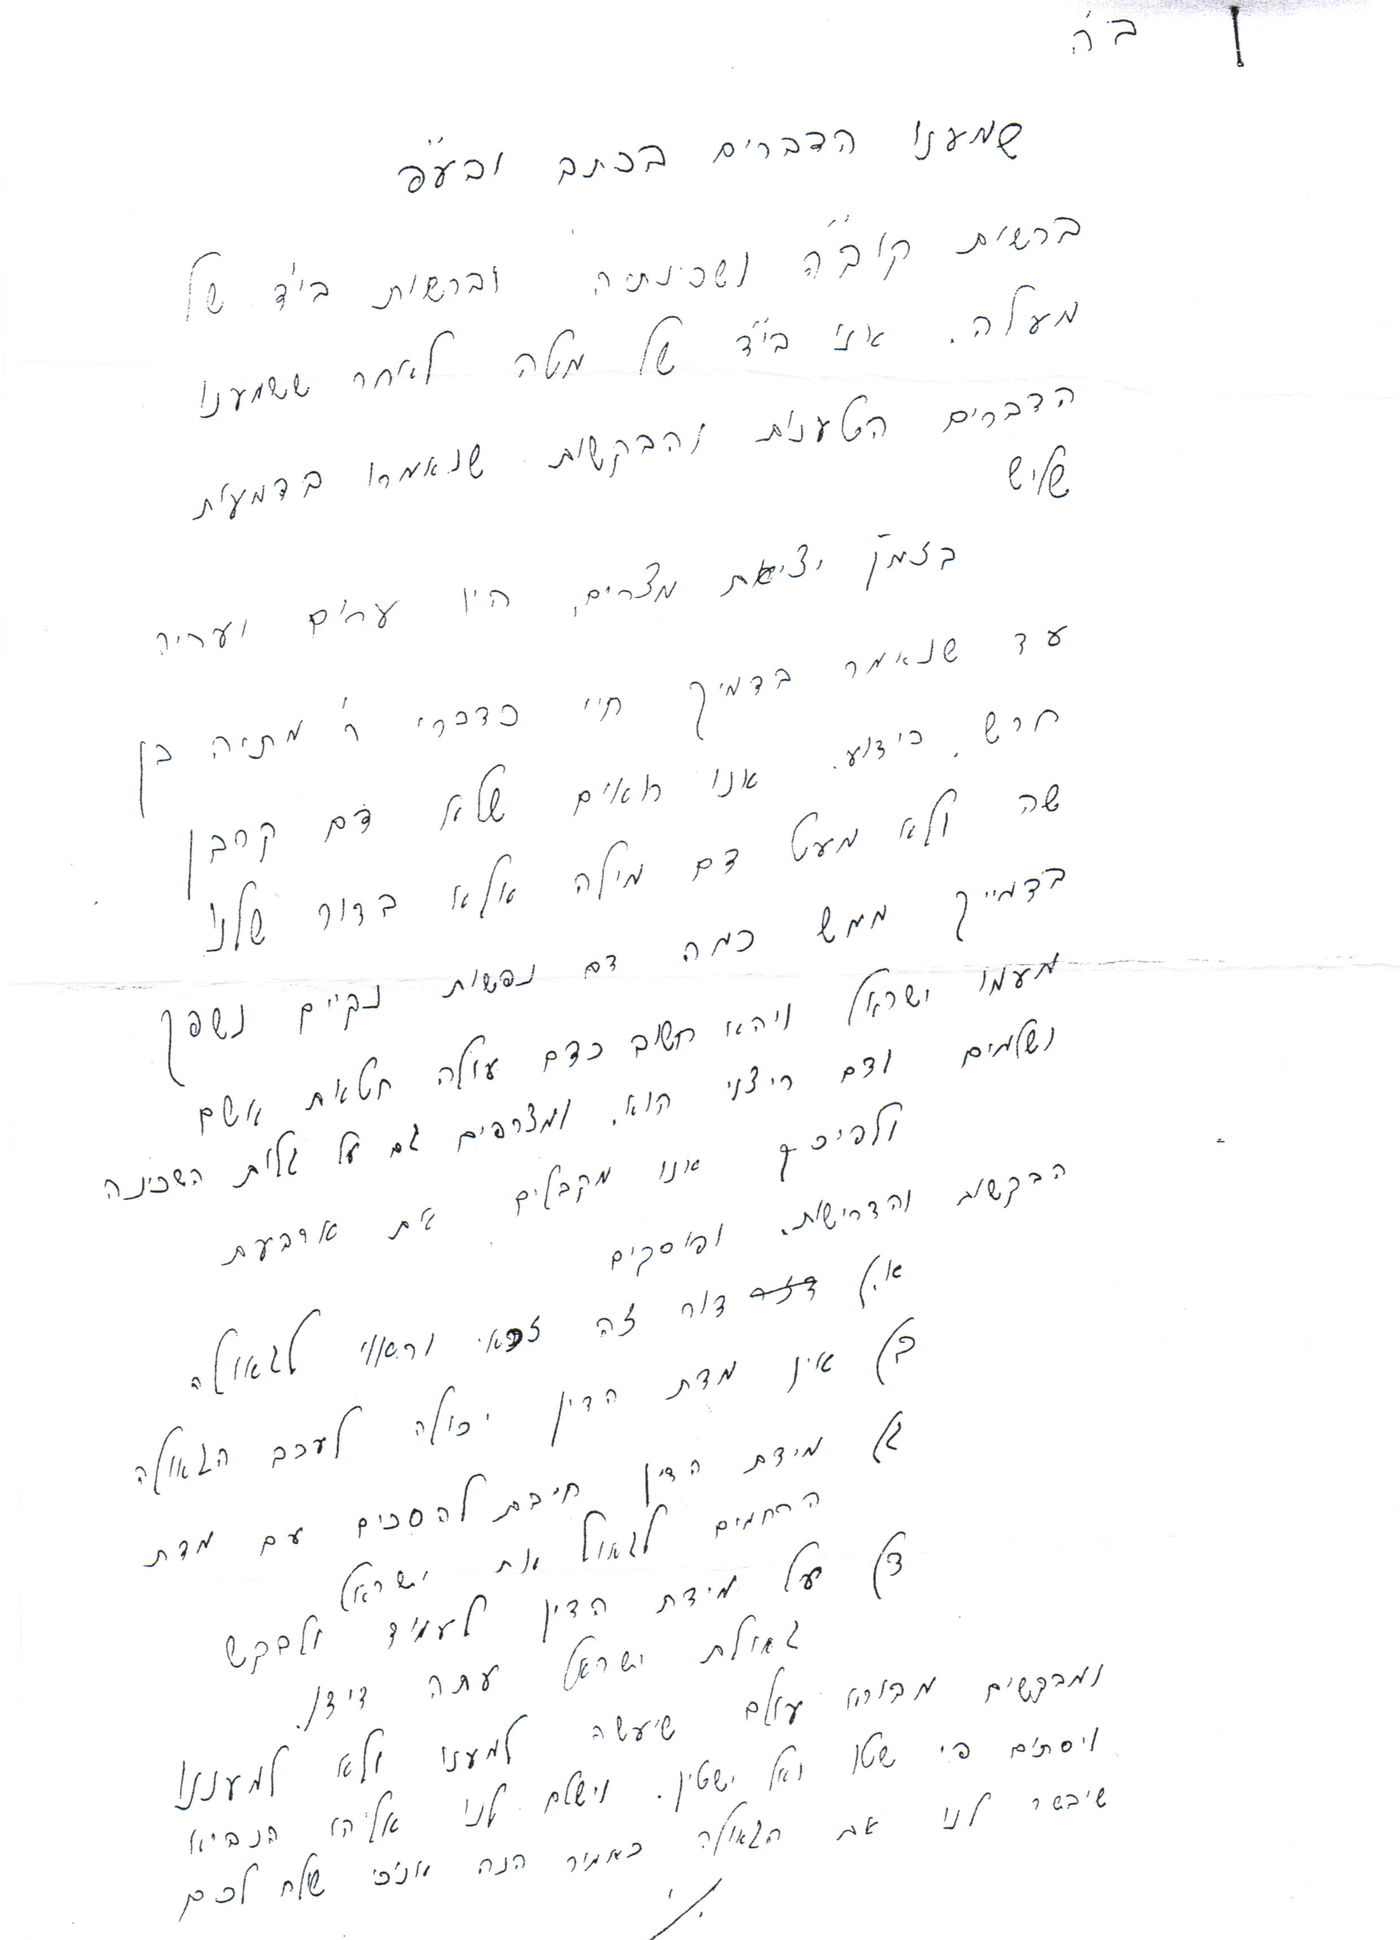 ב"ה
שמענו הדברים בכתב ובע"פ
ברשות קוב"ה ושכינתיה וברשות בי"ד של
מעלה. אנו בי"ד של מטה לאחר ששמענו
הדברים הטענות והבקשות שנאמרו בדמעות
שליש
בזמן יציאת מצרים, היו ערום ועריה
עד שנאמר בדמיך חיי כדברי ר' מתיה בן
חרש. כידוע. אנו רואים שלא דם קרבן
שה ולא מעט דם מילה אלא בדור שלנו
בדמייך ממש כמה דם נפשות נקיים נשפך
מעמו ישראל ויהא חשוב כדם עולה חטאת אשם
ושלמים ודם ריצוי הוא. ומצרפים גם על גלות השכינה
ולפיכך אנו מקבלים את ארבעת
הבקשות והדרישות. ופוסקים
א.) דור זה זכאי וראוי לגאולה
ב) אין מדת הדין יכולה לעכב הגאולה
ג) מידת הדין חיבת להסכים עם מדת
הרחמים לגאול את ישראל
ד) על מידת הדין לעמוד ולבקש
גאולת ישראל עתה דידן.
ומבקשים מבורא עולם שיעשה למענו ולא למעננו
ויסתום פי שטן ואל ישטין. וישלח לנו אליהו הנביא
שיבשר לנו את הגאולה כאמור הנה אנוכי שולח לכם